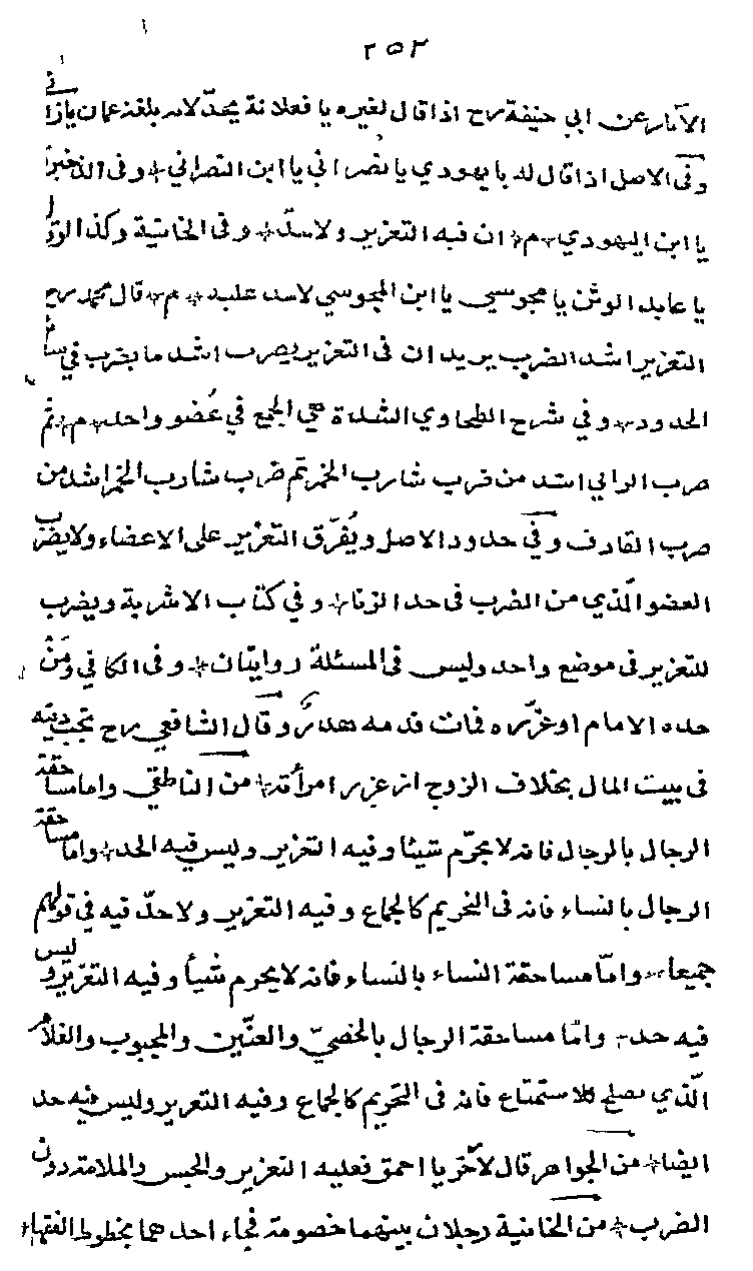 ٢٥٢
الآثار عن ابي حنيفة رح اذا قال لغيره يا فعلانة يحد لانه بلغة عمان يا زاني
وفى الاصل اذا قال له يا يهودي يا نصراني يا ابن النصراني وفى الذخيرة
يا ابن اليهودي م ان فيه التعزير ولا حد وفى الخانية وكذا لو قال
يا عابد الوثن يا مجوسي يا ابن المجوسي لا حد عليه م قال محمد رح
التعزير اشد الضرب يريد ان فى التعزير يضرب اشد ما يضرب في سائر
الحدود وفي شرح الطحاوي الشدة هي الجمع في عضو واحد م ثم
ضرب الزاني اشد من ضرب شارب الخمر ثم ضرب شارب الخمر اشد من
ضرب القاذف وفي حدود الاصل ويُفرّق التعزير على الاعضاء ولا يضرب
العضو الذي من الضرب فى حد الزنا وفي كتاب الاشربة ويضرب
للتعزير فى موضع واحد وليس فى المسئلة روايتان وفى الكافي ومَنْ
حده الامام او عزّره فمات فدمه هدرٌ وقال الشافعي رح تجب ديته
فى بيت المال بخلاف الزوج اذ عزر امرأته من الناطقي واما مساحقة
الرجال بالرجال فانه لا يحرّم شيئا وفيه التعزير وليس فيه الحد واما مساحقة
الرجال بالنساء فانه فى التحريم كالجماع وفيه التعزير ولا حدّ فيه في قولهم
جميعا وامّا مساحقة النساء بالنساء فانه لا يحرم شيأ وفيه التعزير وليس
فيه حد وامّا مساحقة الرجال بالخصيّ والعنّين والمجبوب والغلام
الّذي يصلح للاستمتاع فانه فى التحريم كالجماع وفيه التعزير وليس فيه حد
ايضا من الجواهر قال لآخر يا احمق فعليه التعزير والحبس والملامة دون
الضرب من الخانية رجلان بينهما خصومة فجاء احدهما بخطوط الفقهاء